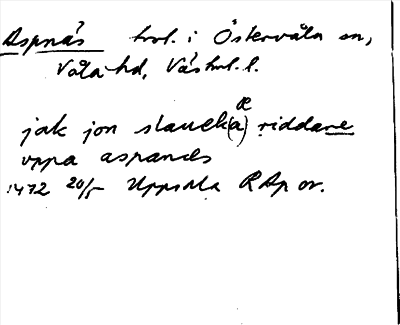 Aspnäs hvl. i Östervåla sn,
Våla hd, Västml. l.
jak jon slauek(a)R riddare
vppa aspanæs
1472 20/5 Uppsala RAp or.